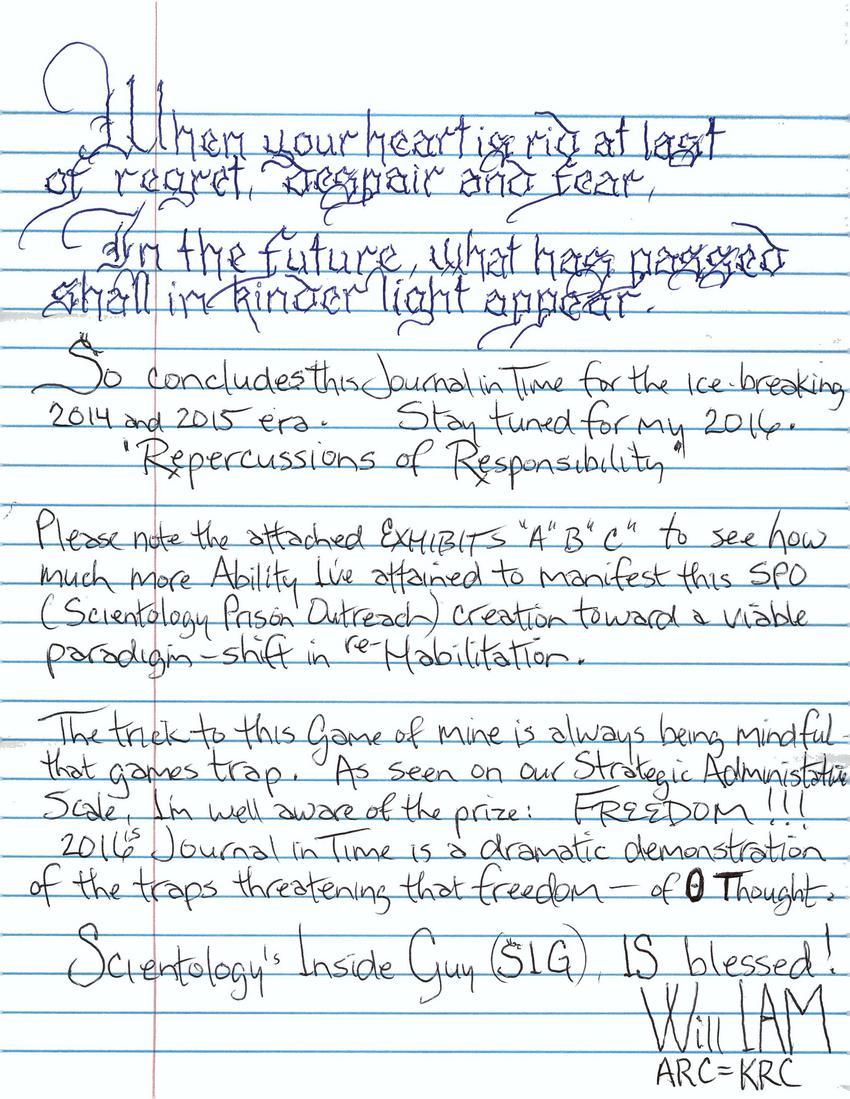 When your heart is rid at last
of regret, Despair and fear,
In the future, what has passed
shall in kinder light appear.
So concludes this Journal in Time for the ice-breaking
2014 and 2015 era. Stay tuned for my 2016.
"Repercussions of Responsibility"
Please note the attached EXHIBITS "A" B" C" to see how
much more Ability I've attained to manifest this SPO
(Scientology Prison Outreach) creation toward a viable
paradigm-shift in re-Habilitation.
The trick to this Game of mine is always being mindful-
that games trap. As seen on our Strategic Administative
Scale, I'm well aware of the prize: FREEDOM!!!
2016's Journal in Time is a dramatic demonstration
of the traps threatening that freedom — of θ Thought.
Scientology's Inside Guy (SIG), IS blessed!
Will IAM
ARC=KRC